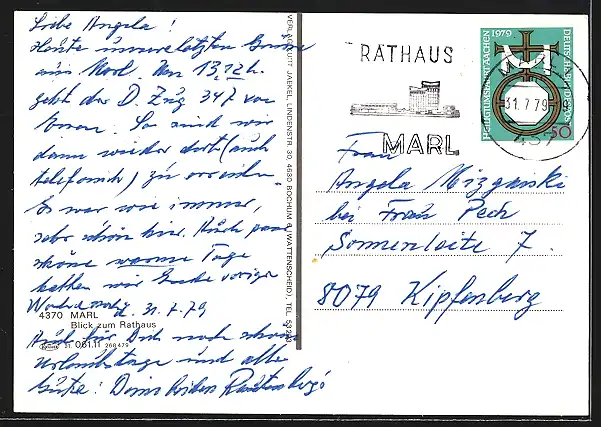 Liebe Angela!
Heute unsere letzten Grüße
aus Marl. Um 13,12 h.
geht der D. Zug 347 von
Essen. So sind wir
dann wieder dort (auch
telefonisch) zu erreichen
Es war wie immer,
sehr schön hier. Auch paar
schöne warme Tage
hatten wir Ende voriger
Woche
d. 31.7.79
4370 MARL
Blick zum Rathaus
061.11 268479
Auch für Dich noch schöne
Urlaubstage und alles
Gute! Deine beiden
VERLAG KURT JAEKEL, LINDENSTR. 30, 4630 BOCHUM 6 (WATTENSCHEID), TEL.
RATHAUS
MARL
1979
HEILIGTUMSFAHRT AACHEN
DEUTSCHE BUNDESPOST
50
31.7.79
437
Frau
Angela Mizganski
bei Frau Pech
Sonnenleite 7.
8079 Kipfenberg